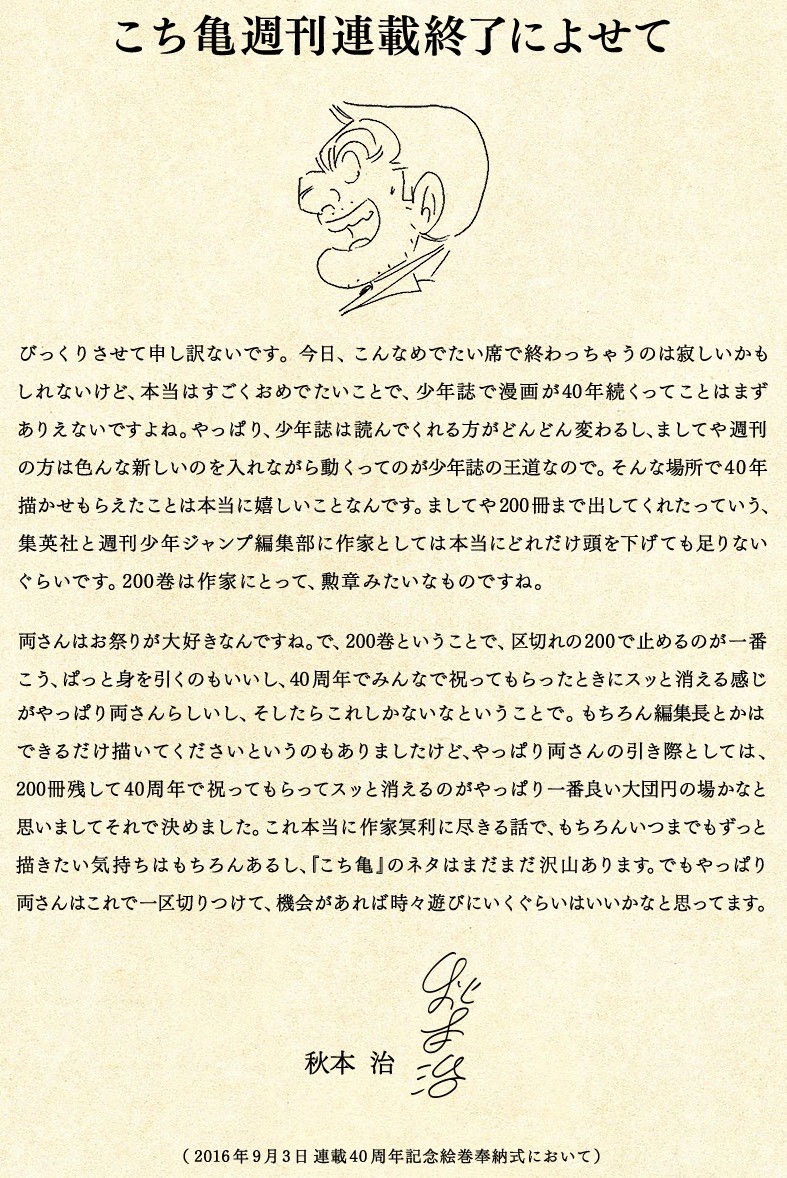 こち亀週刊連載終了によせて
びっくりさせて申し訳ないです。今日、こんなめでたい席で終わっちゃうのは寂しいかも
しれないけど、本当はすごくおめでたいことで、少年誌で漫画が40年続くってことはまず
ありえないですよね。やっぱり、少年誌は読んでくれる方がどんどん変わるし、ましてや週刊
の方は色んな新しいのを入れながら動くってのが少年誌の王道なので。そんな場所で40年
描かせもらえたことは本当に嬉しいことなんです。ましてや200冊まで出してくれたっていう、
集英社と週刊少年ジャンプ編集部に作家としては本当にどれだけ頭を下げても足りない
ぐらいです。200巻は作家にとって、勲章みたいなものですね。
両さんはお祭りが大好きなんですね。で、200巻ということで、区切れの200で止めるのが一番
こう、ぱっと身を引くのもいいし、40周年でみんなで祝ってもらったときにスッと消える感じ
がやっぱり両さんらしいし、そしたらこれしかないなということで。もちろん編集長とかは
できるだけ描いてくださいというのもありましたけど、やっぱり両さんの引き際としては、
200冊残して40周年で祝ってもらってスッと消えるのがやっぱり一番良い大団円の場かなと
思いましてそれで決めました。これ本当に作家冥利に尽きる話で、もちろんいつまでもずっと
描きたい気持ちはもちろんあるし、『こち亀』のネタはまだまだ沢山あります。でもやっぱり
両さんはこれで一区切りつけて、機会があれば時々遊びにいくぐらいはいいかなと思ってます。
秋本 治
秋本治
（2016年9月3日 連載40周年記念絵巻奉納式において）